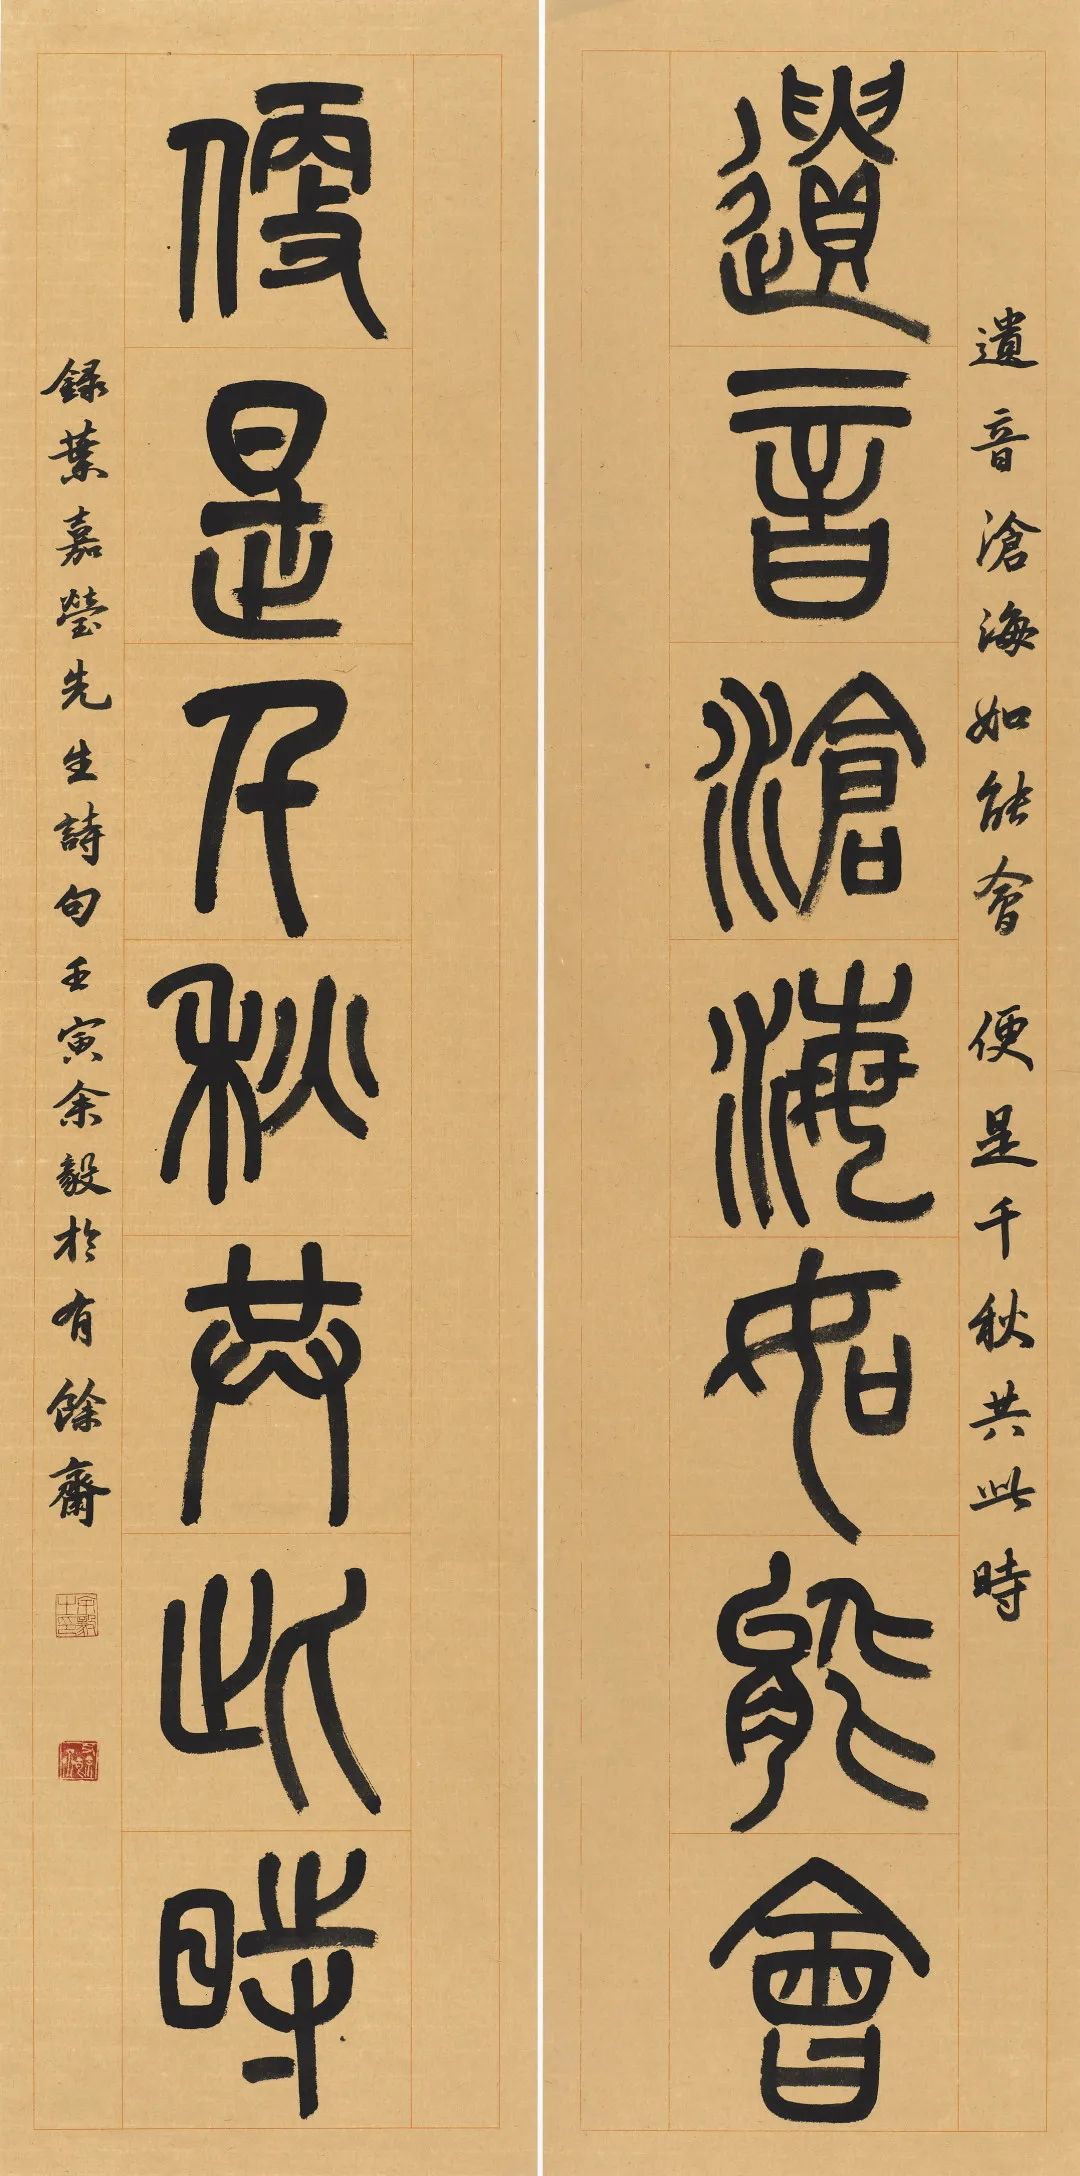 遺音滄海如能會
便是千秋共此時
遺音滄海如能會 便是千秋共此時
録葉嘉瑩先生詩句壬寅余毅於有餘齋